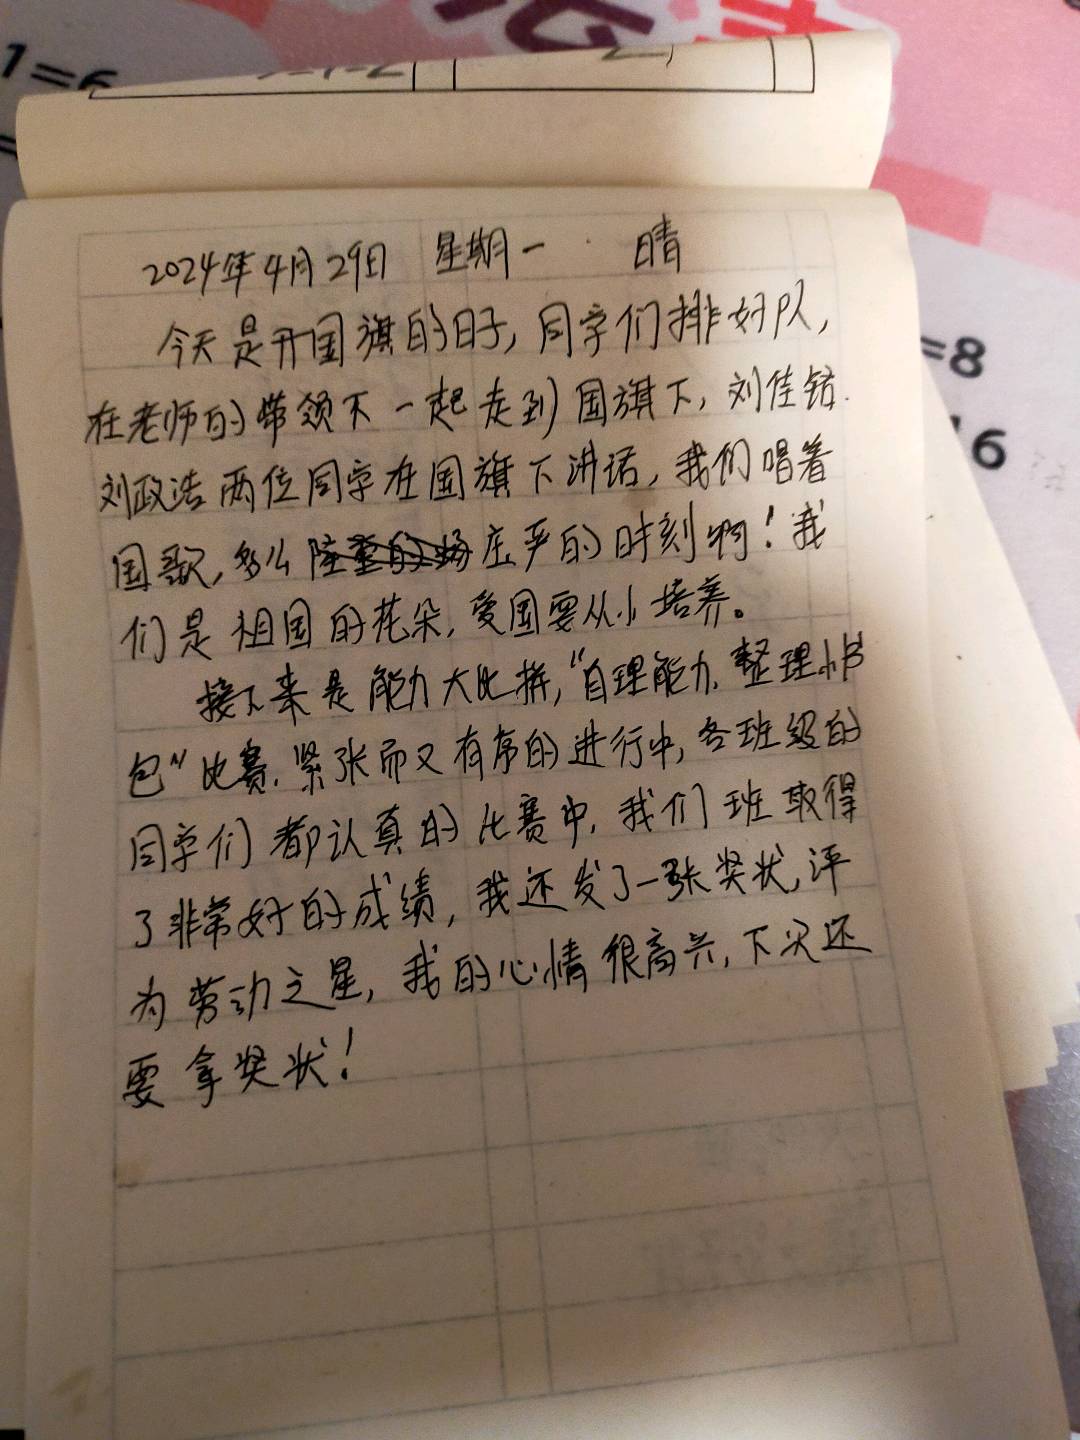 1=6
=8
16
2024年4月29日 星期一 晴
今天是升国旗的日子,同学们排好队,
在老师的带领下一起走到国旗下,刘佳铭.
刘政浩两位同学在国旗下讲话,我们唱着
国歌,多么庄严的时刻啊!我
们是祖国的花朵,爱国要从小培养。
接下来是能力大比拼,“自理能力,整理小书
包”比赛,紧张而又有序的进行中,各班级的
同学们都认真的比赛中,我们班取得
了非常好的成绩,我还发了一张奖状,评
为劳动之星,我的心情很高兴,下次还
要拿奖状!